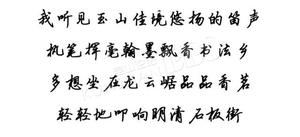 我听见玉山佳境悠扬的笛声
执笔挥毫翰墨飘香书法乡
多想坐在龙云崌品品香茗
轻轻地叩响明清石板街